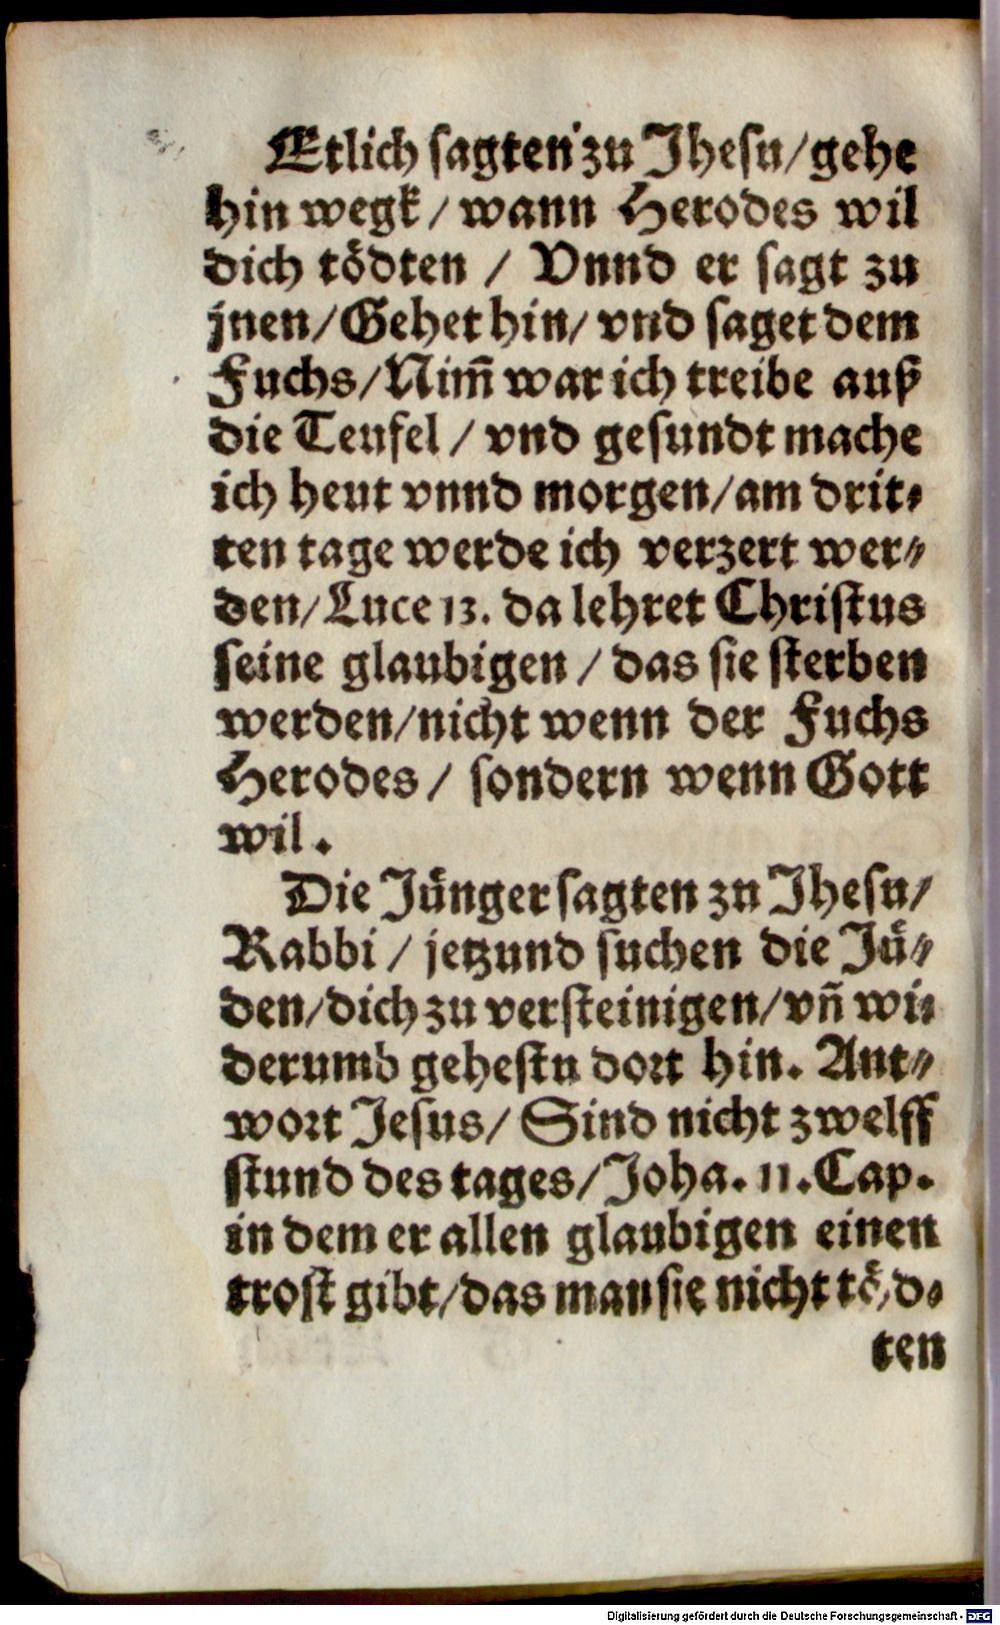 Etlich sagten zu Jhesu/gehe
hin wegk/ wann Herodes wil
dich tödten / Vnnd er sagt zu
jnen/Gehet hin/ vnd saget dem
Fuchs/Nim̄ war ich treibe auß
die Teufel / vnd gesundt mache
ich heut vnnd morgen/am drit⸗
ten tage werde ich verzert wer⸗
den/Luce 13. da lehret Christus
seine glaubigen / das sie sterben
werden/nicht wenn der Fuchs
Herodes/ sondern wenn Gott
wil.
Die Jünger sagten zu Jhesu/
Rabbi / jetzund suchen die Jü⸗
den/dich zu versteinigen/vñ wi⸗
derumb gehestu dort hin. Ant⸗
wort Jesus/ Sind nicht zwelff
stund des tages/Joha. 11. Cap.
in dem er allen glaubigen einen
trost gibt/das man sie nicht töd⸗
ten
Digitalisierung gefördert durch die Deutsche Forschungsgemeinschaft - DFG